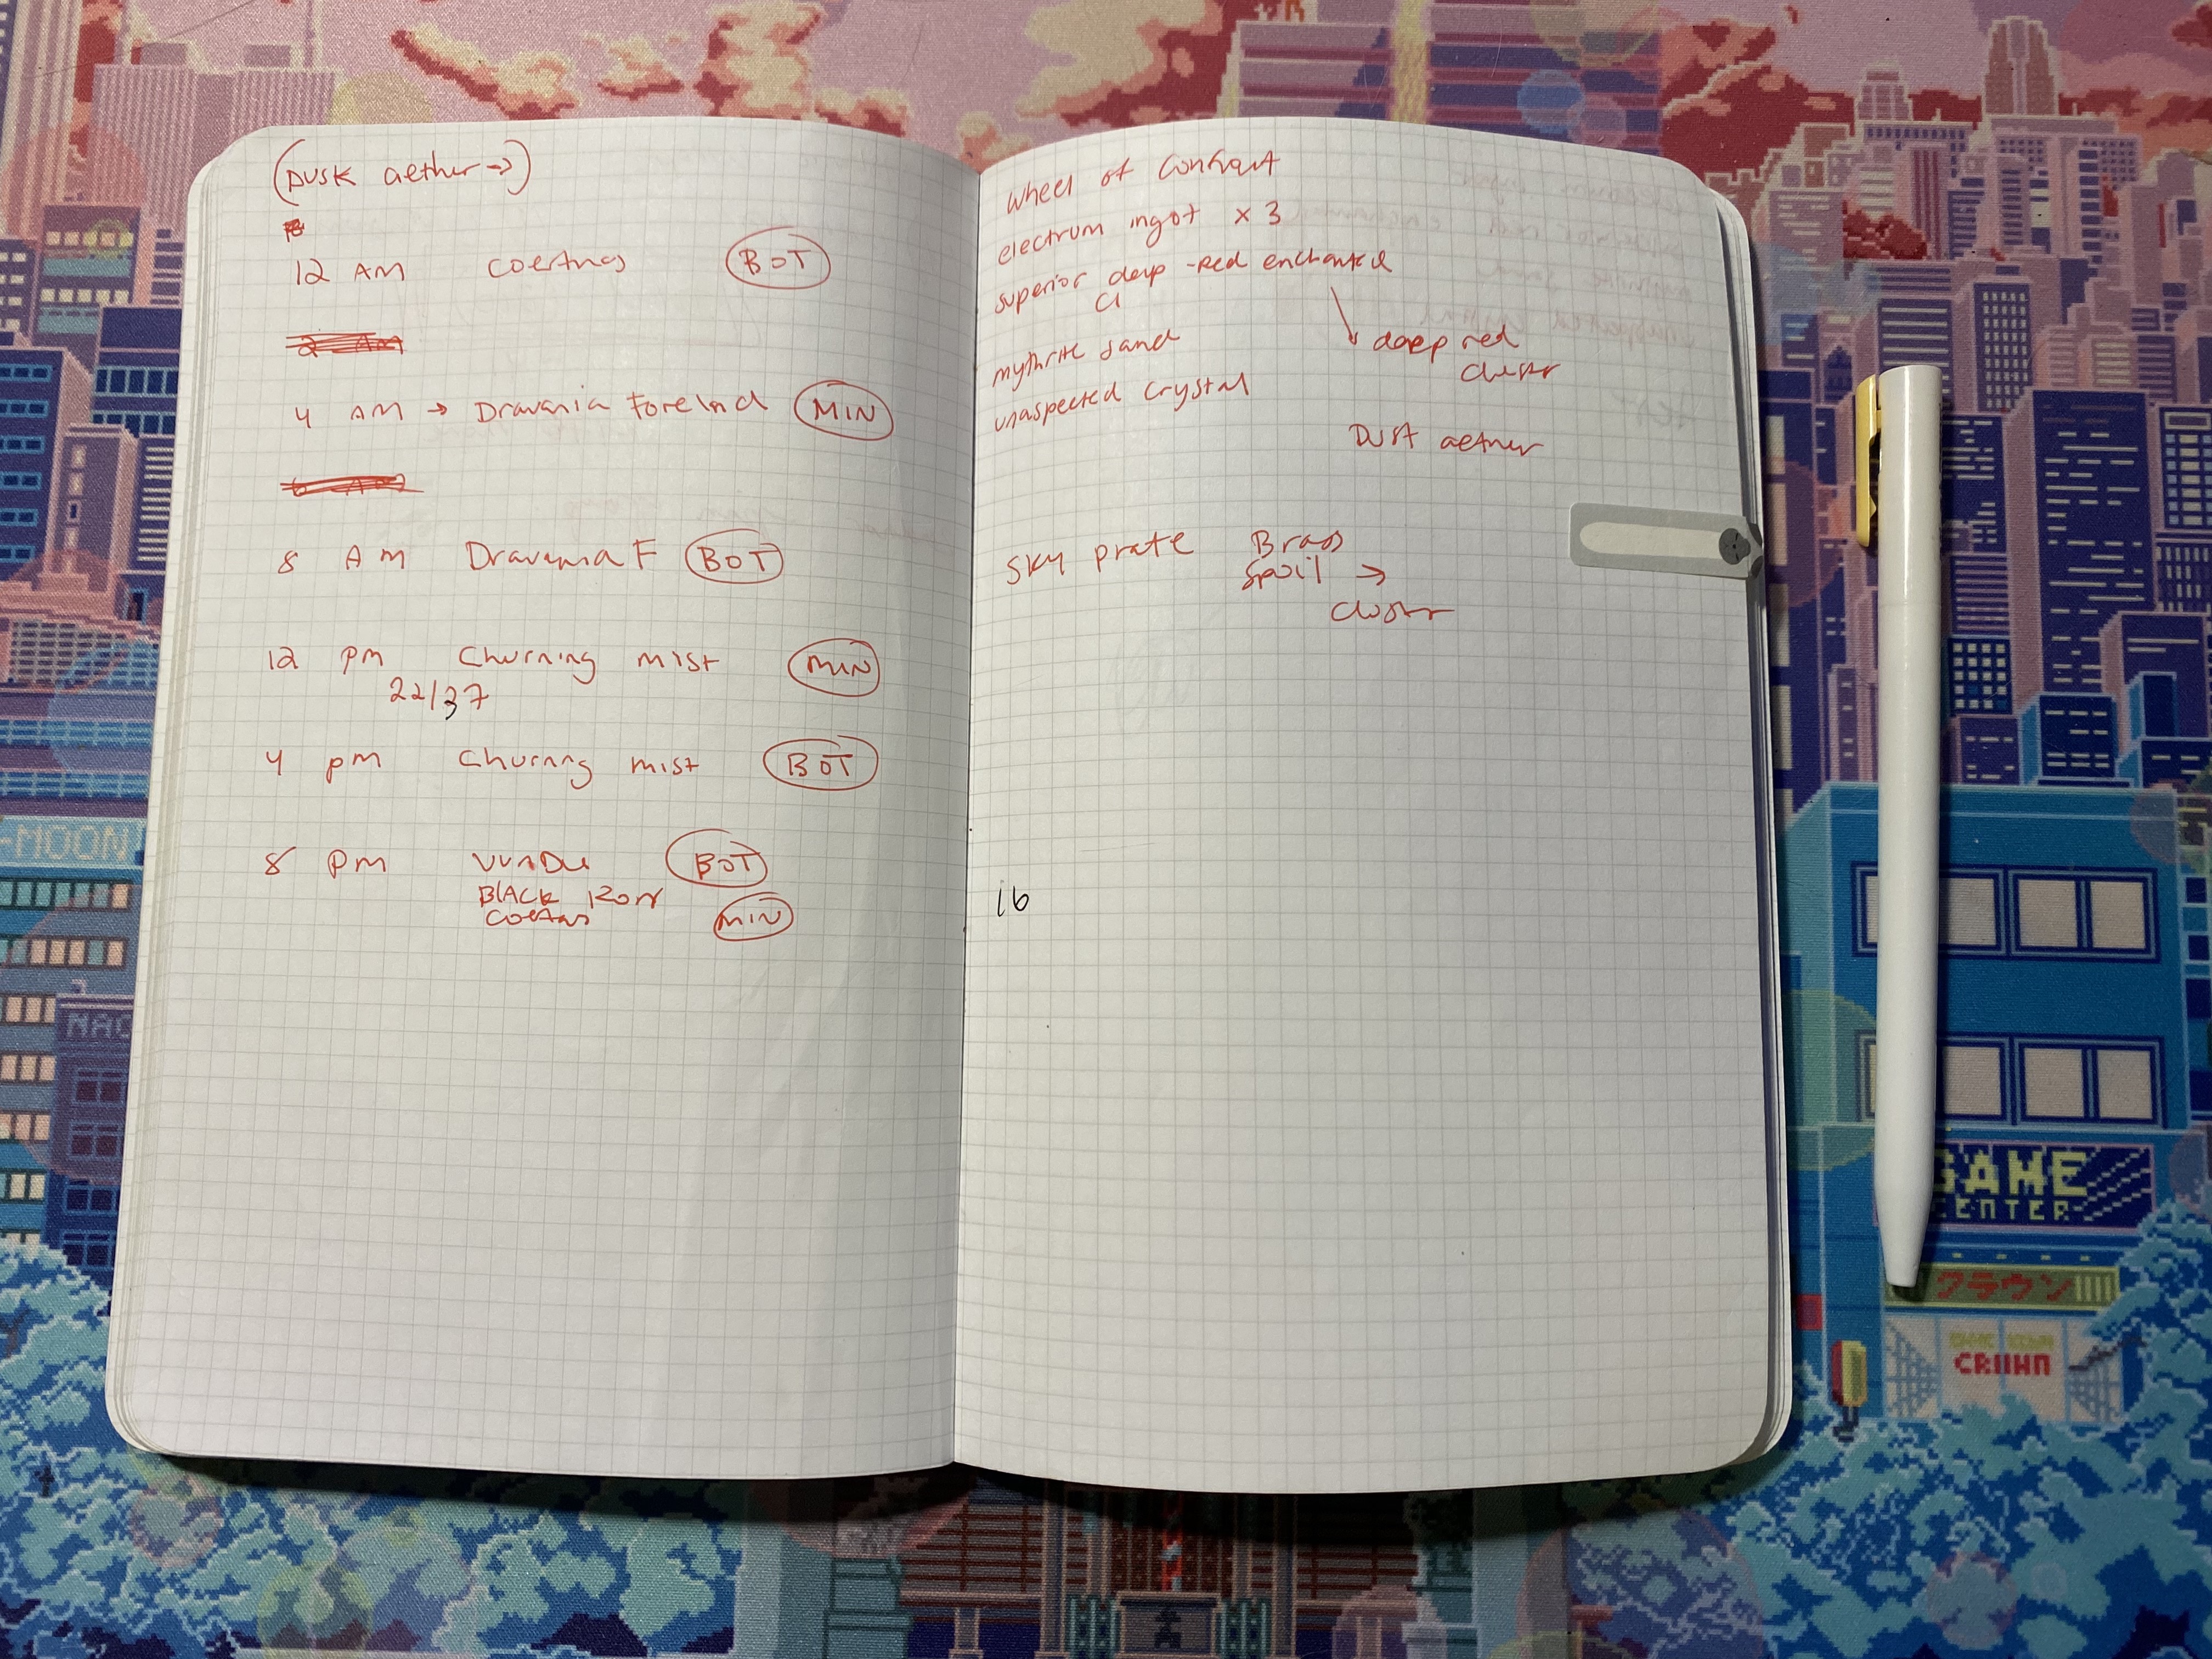 (DUSK aether →)
12 AM Coerthas BOT
2 AM
4 AM → Dravania Forelnd MIN
6 AM
8 AM Dravania F BOT
12 pm Churning mist MIN
22/37
4 pm Churnng mist BOT
8 pm BOT
BLACK IRON
MIN
Wheel of
electrum ingot x 3
superior deep-red enchanted
mythrite sand
unaspected crystal
deep red
DUST aether
SKY pirate Brass
spoil →
16
-MOON
NAC
GAME
CENTER
クラウン
CROWN